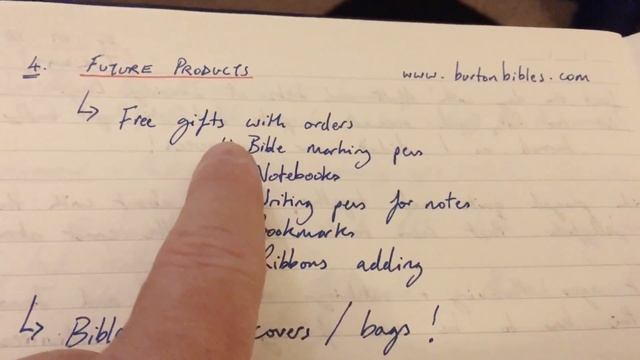 4. FUTURE PRODUCTS
www.burtonbibles.com
↳ Free gifts with orders
Bible marking pens
Notebooks
Writing pens for notes
Bookmarks
Ribbons adding
↳ Bible covers / bags!